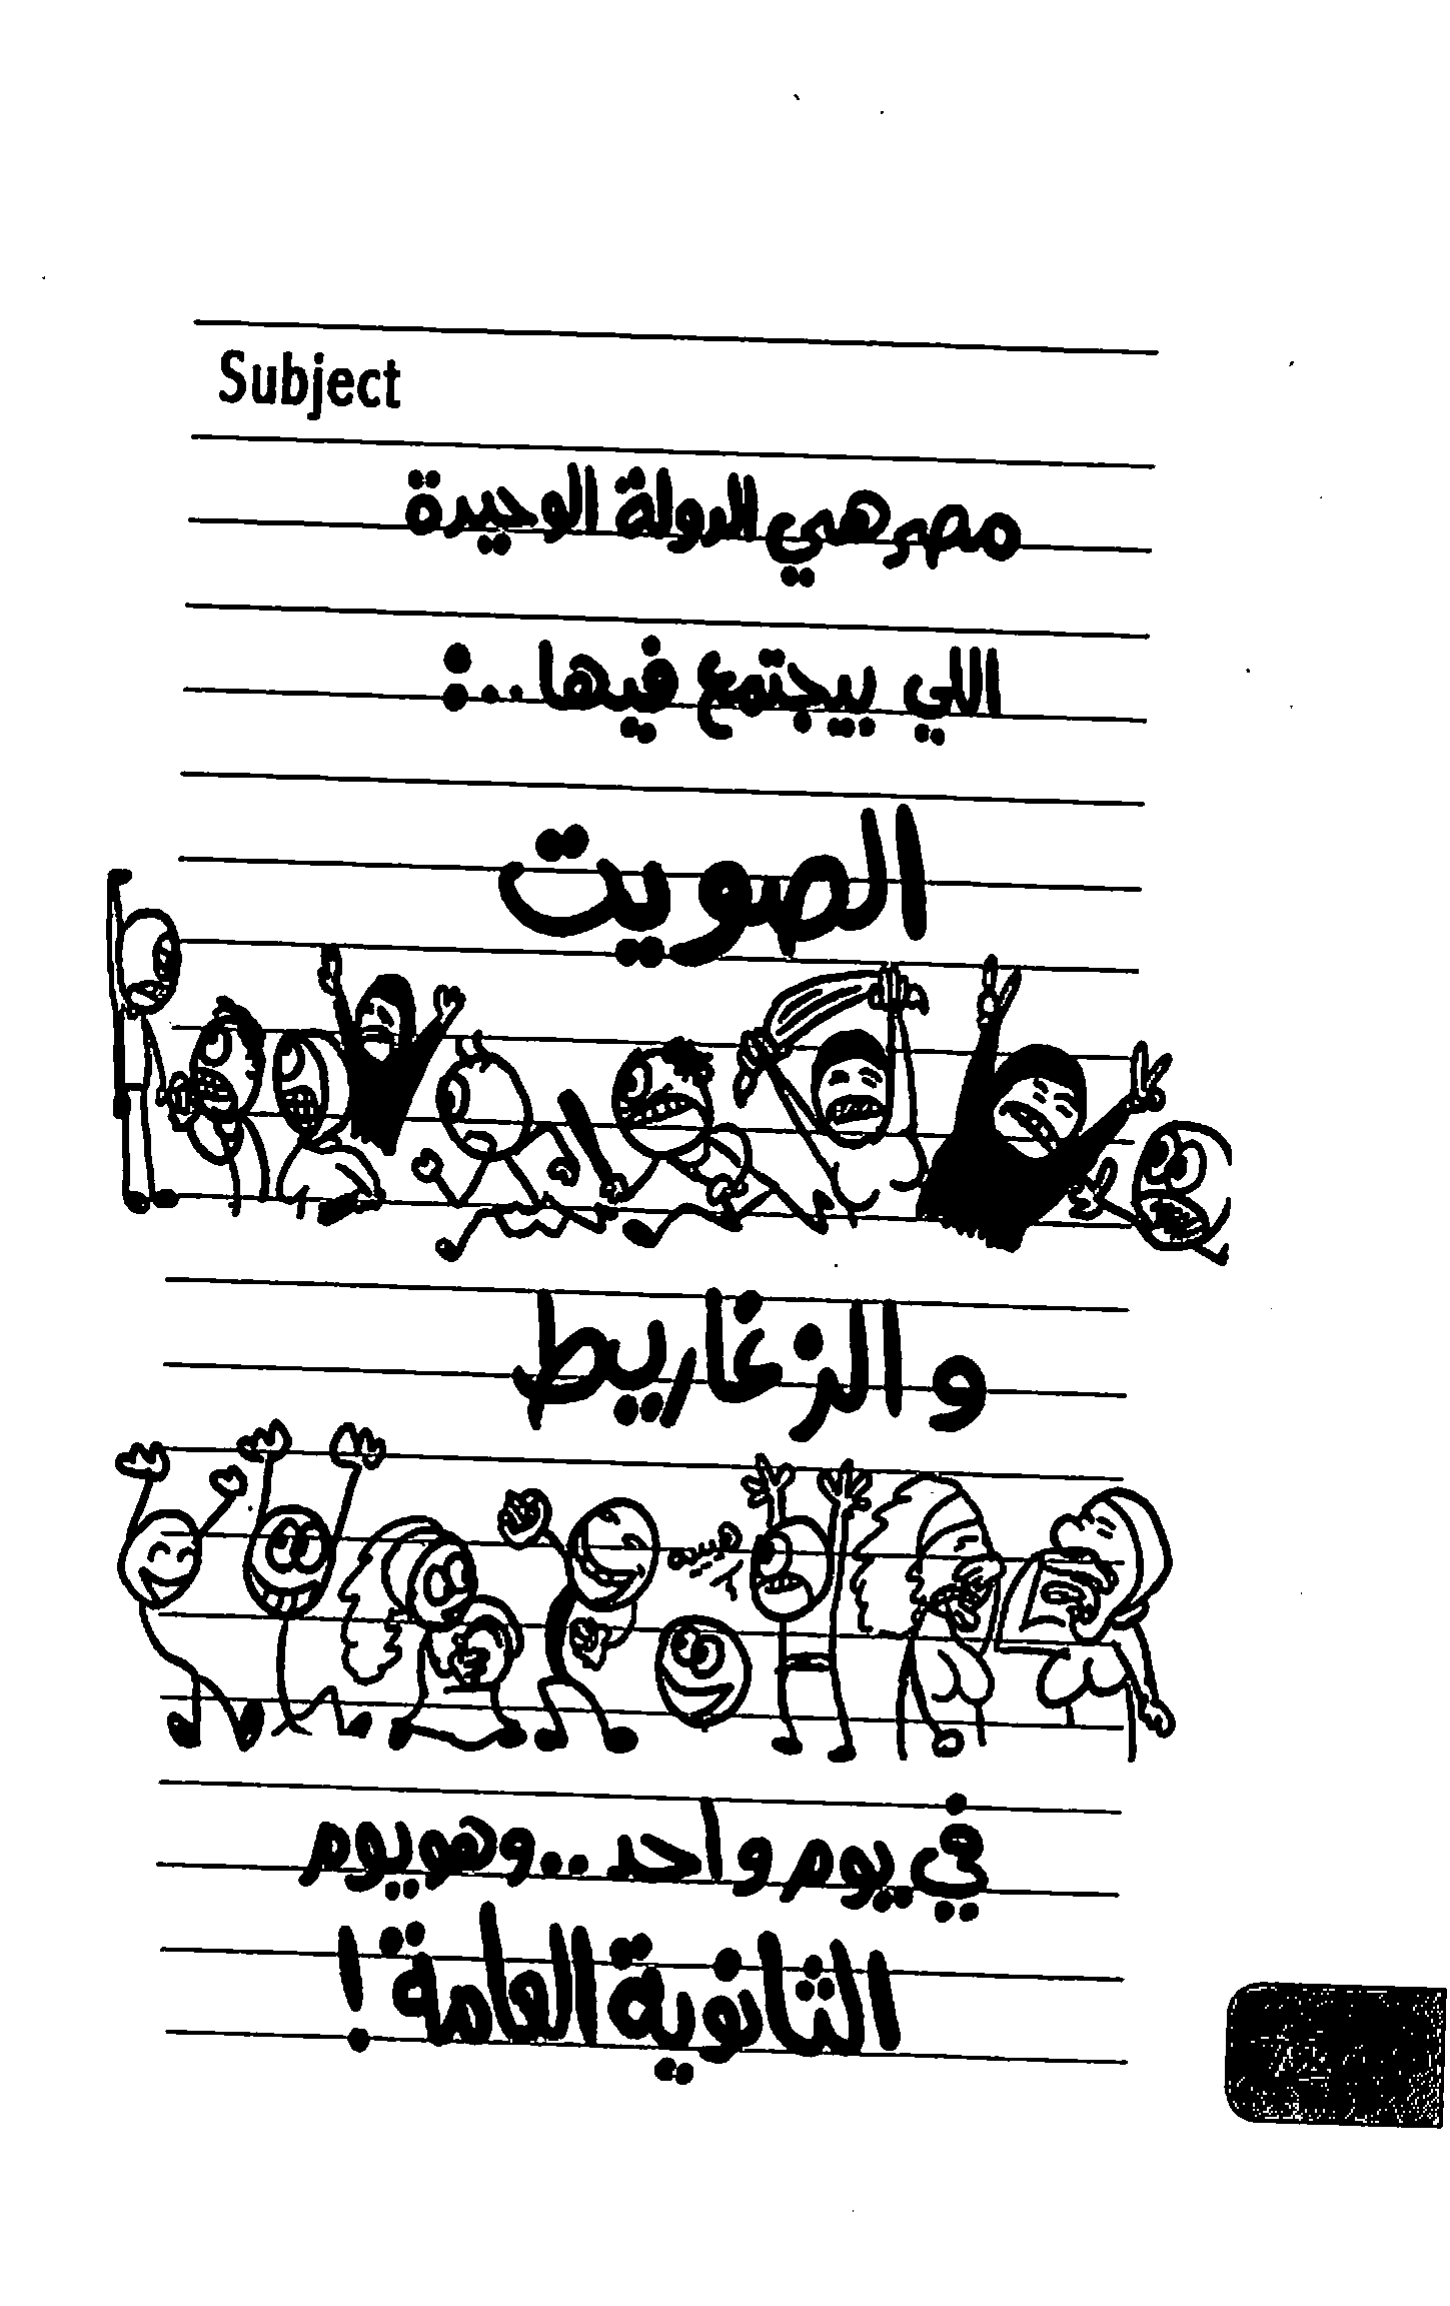 Subject
مصر هي الدولة الوحيدة
اللي بيجتمع فيها..:
الصويت
و الزغاريط
في يوم واحد..وهو يوم
الثانوية العامة!